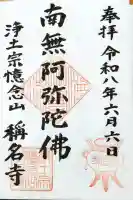 奉拝 令和八年六月六日
南無阿弥陀佛
浄土宗憶念山 稱名寺